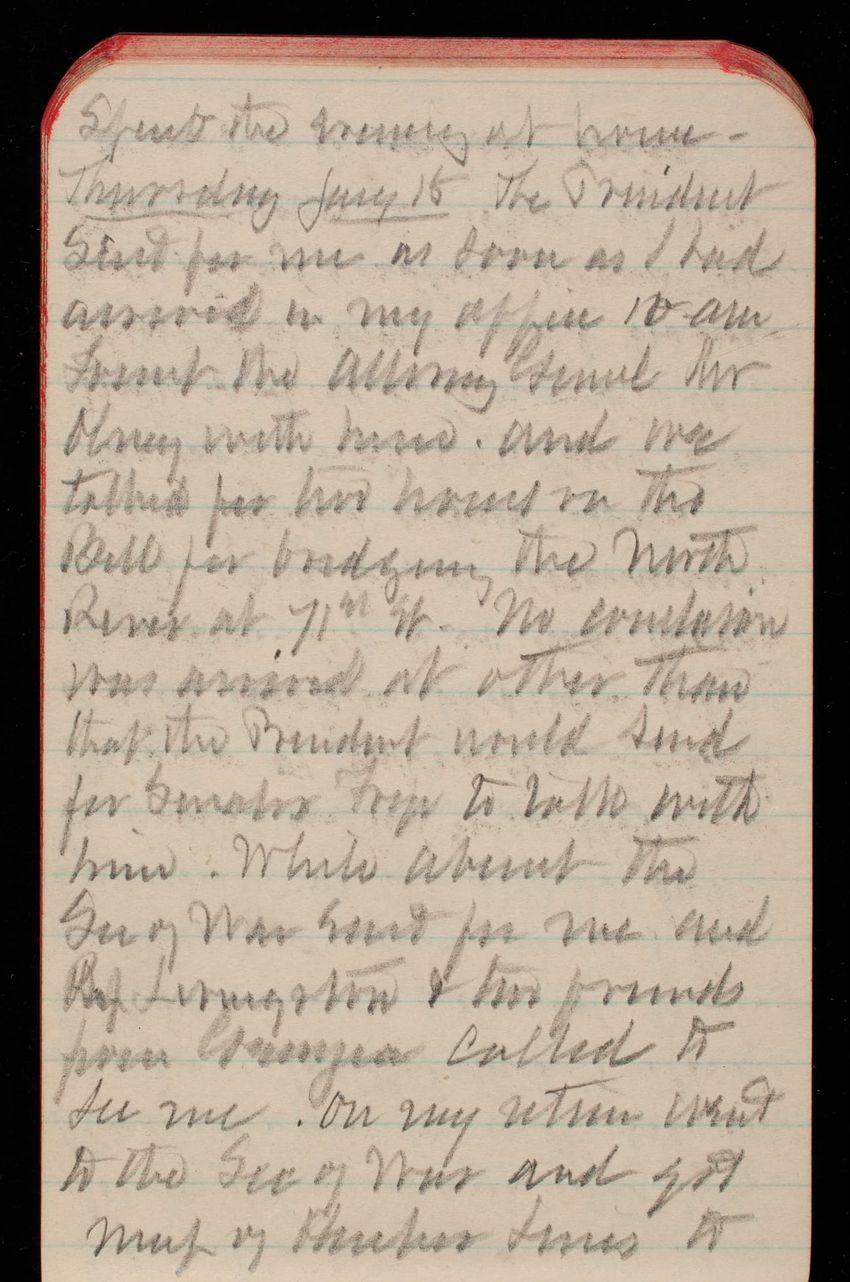 Spent the evening at home -
Thursday Jany 18 The President
Sent for me as soon as I had
arrived in my office 10 am
Found the Attorney Genrl Mr
Olney with him. and we
talked for two hours on the
Bill for bridging the North
River at 71st St. No conclusion
was arrived at other than
that the President would send
for Senator Frye to talk with
him. While absent the
Sec of War send for me and
Rep Livingston & two friends
from Georgia called to
see me. On my return went
to the Sec of War and got
map of to